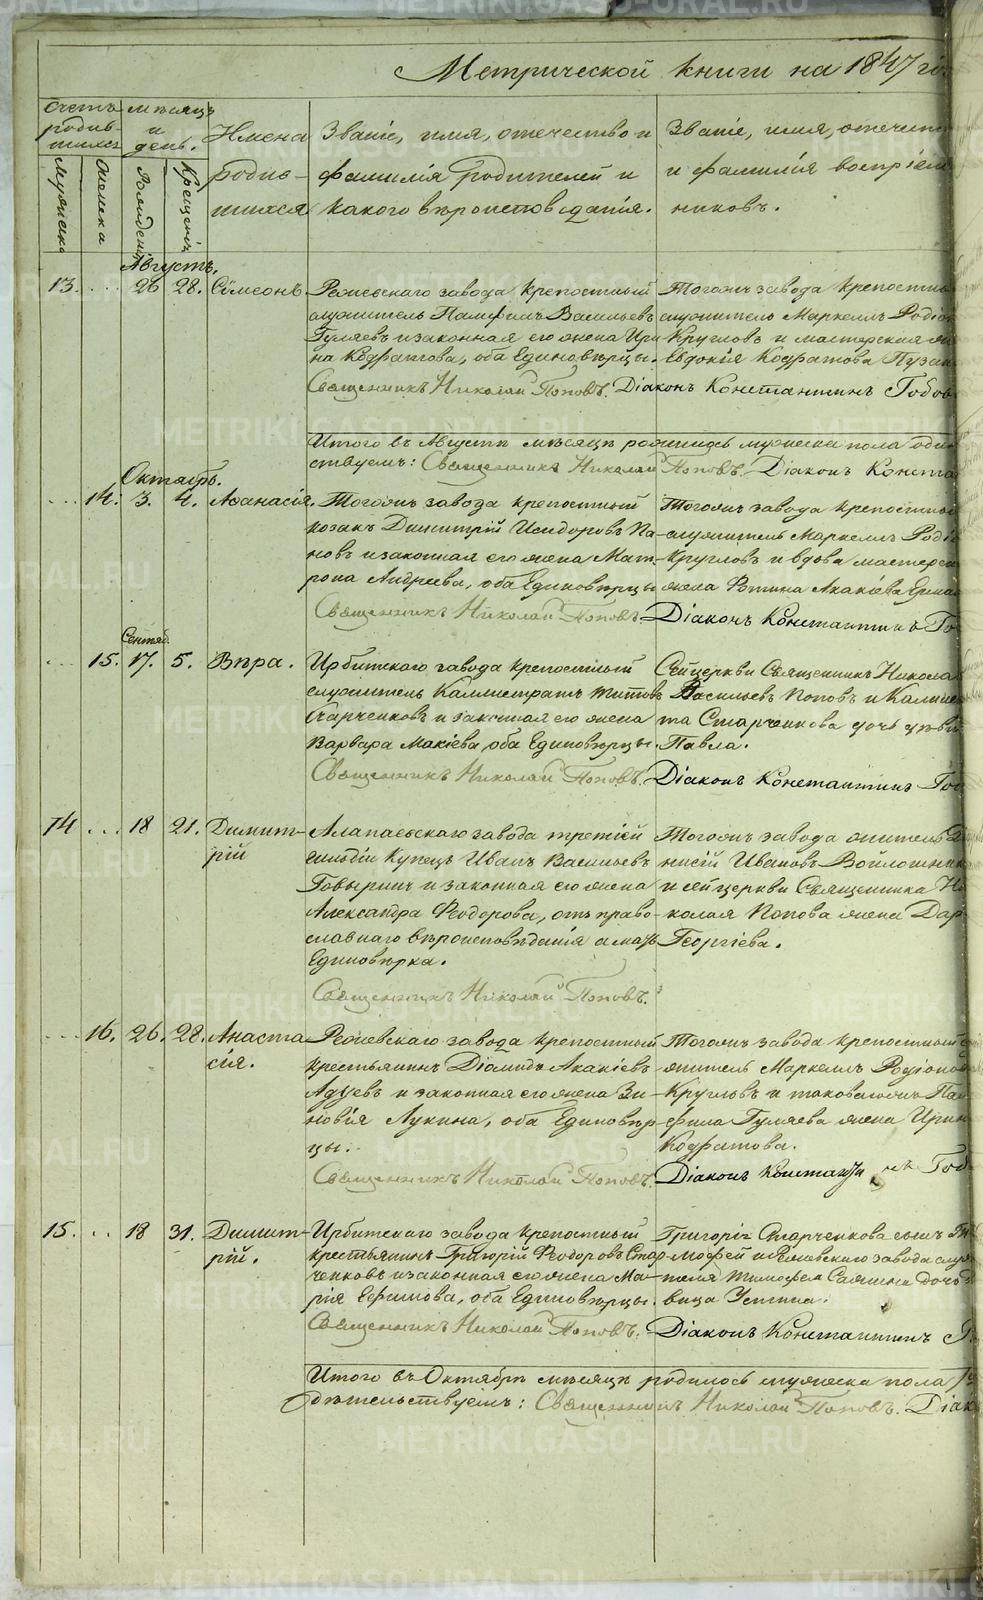 Метрической книги на 1847 го
Счетъ родив-шихся
Мѣсяцъ и день.
Имена родив-шихся
Званіе, имя, отечество и
фамилія родителей и
какого вѣроисповѣданія.
Званіе, имя, отечест
и фамилія воспріем
никовъ.
Мужеска
Женска
Рожденія
Крещенія
Августъ.
13. ... 26 28. Сѵмеонъ.
Режевскаго завода крепостный
служитель Памфилъ Васильевъ
Гуляевъ и законная его жена Ири
на Кодратова, оба Единовѣрцы.
Тогожъ завода крепостны
служитель Маркеллъ Родіо
Кругловъ и мастерская же
Евдокія Кодратова Пузан
Священникъ Николай Поповъ. Діаконъ Константинъ
Итого въ Августѣ мѣсяцѣ родилось мужеска пола оди
ствуемъ: Священникъ Николай Поповъ. Діаконъ Конста
Октябрь.
... 14. 3. 4. Аѳанасія.
Тогожъ завода крепостный
козакъ Димитрій Исидоровъ Па-
новъ и законная его жена Мат-
рона Андреева, оба Единовѣрцы
Тогожъ завода крепостный
служитель Маркеллъ Родіо
Кругловъ и вдова мастерск
жена Фотина Акакіева
Священникъ Николай Поповъ. Діаконъ Константинъ Го
Сентяб.
... 15. 17. 5. Вѣра.
Ирбитскаго завода крепостный
служитель Каллистратъ Титовъ
Старченковъ и законная его жена
Варвара Макіева, оба Единовѣрцы.
Сей церкви Священникъ Никола
Васильевъ Поповъ и Каллис
та Старченкова дочь дѣви
Павла.
Священникъ Николай Поповъ. Діаконъ Константинъ Го
14 ... 18 21. Димит-
рій
Алапаевскаго завода третіей
гильдіи Купецъ Иванъ Васильевъ
Говыринъ и законная его жена
Александра Феодорова, отъ право-
славнаго вѣроисповѣданія а мать
Единовѣрка.
Тогожъ завода житель
нисій Ивановъ Войлошник
и сей церкви Священника Ни
колая Попова жена Дар
Георгіева.
Священникъ Николай Поповъ.
... 16. 26. 28. Анаста
сія.
Режевскаго завода крепостный
крестьянинъ Діомидъ Акакіевъ
Адуевъ и законная его жена Зи-
новія Лукина, оба Единовѣр
цы.
Тогожъ завода крепостный с
житель Маркеллъ Родіонов
Кругловъ и таковагожъ Пам
фила Гуляева жена Ирин
Кодратова.
Священникъ Николай Поповъ. Діаконъ Константинъ Гоб
15. .. 18 31. Димит-
рій.
Ирбитскаго завода крепостный
крестьянинъ Григорій Феодоровъ Стар-
ченковъ и законная его жена Ма-
рія Ефимова, оба Единовѣрцы.
Григорія Старченкова сынъ Ти
мофей и Режевскаго завода служ
теля Тимофея Саянина дочь дѣ
вица Устина.
Священникъ Николай Поповъ. Діаконъ Константинъ Г
Итого въ Октябрѣ мѣсяцѣ родилось мужеска пола
дѣтельствуемъ: Священникъ Николай Поповъ. Діак
METRIKI.GASO-URAL.RU